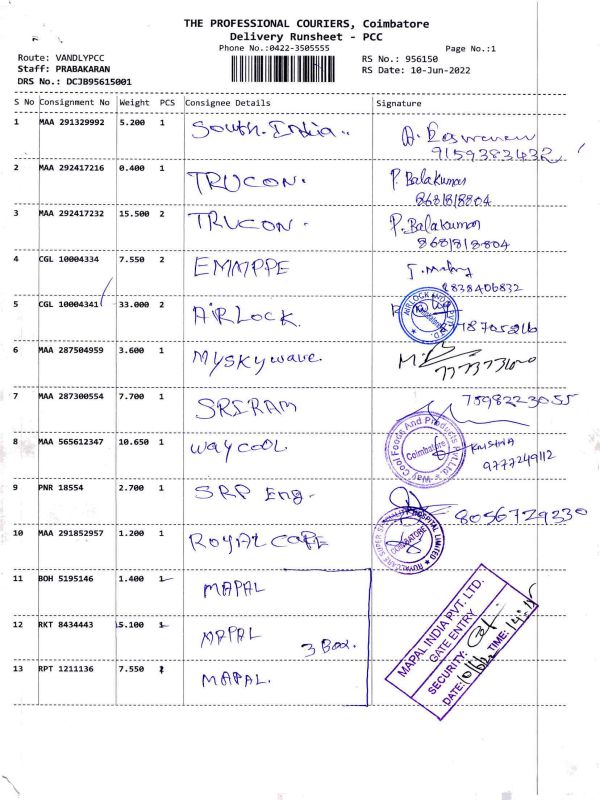 THE PROFESSIONAL COURIERS, Coimbatore
Delivery Runsheet - PCC
Phone No.:0422-3505555
Page No.:1
Route: VANDLYPCC
RS No.: 956150
Staff: PRABAKARAN
RS Date: 10-Jun-2022
DRS No.: DCJB95615001
S No Consignment No Weight PCS Consignee Details Signature
1 MAA 291329992 5.200 1 South.India..
9159383432
2 MAA 292417216 0.400 1 TRUCON. P. Balakumar
8681818804
3 MAA 292417232 15.500 2 TRUCON. P. Balakumar
8681818804
4 CGL 10004334 7.550 2 EMMPPE
9838406832
5 CGL 10004341 33.000 2 AIRLOCK.
6 MAA 287504959 3.600 1 Myskywave.
7 MAA 287300554 7.700 1 SRIRAM 7598223055
8 MAA 565612347 10.650 1 waycool. KRISHNA
Way Cool Foods And Products Pvt.Ltd
Coimbatore
9777249112
9 PNR 18554 2.700 1 SRP Eng. 8056729330
10 MAA 291852957 1.200 1 ROYALCARE
ROYALCARE SUPER SPECIALITY HOSPITAL LIMITED
COIMBATORE
11 BOH 5195146 1.400 1 MAPAL
12 RKT 8434443 5.100 1 MAPAL 3 Box.
13 RPT 1211136 7.550 1 MAPAL.
MAPAL INDIA PVT. LTD.
GATE ENTRY
SECURITY:
DATE: TIME: